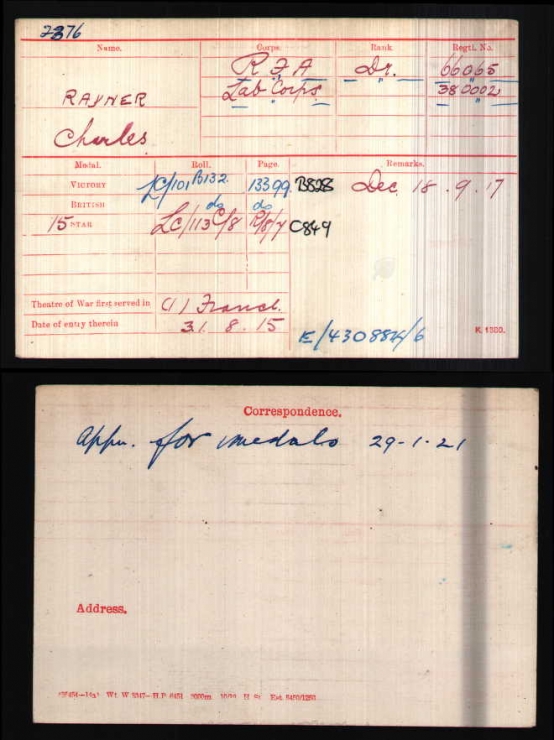 2376
Name. Corps. Rank. Regtl. No.
RAYNER R F A Dr. 66065
Charles Lab Corps " 380002
Medal. Roll. Page. Remarks.
VICTORY LC/101 B132 13399 B828 Dec. 18.9.17
BRITISH do do
15 STAR LC/113 C/8 C849
Theatre of War first served in (1) France.
Date of entry therein 31.8.15
E/4308
K. 1380.
Correspondence.
Appn. for medals 29-1-21
Address.